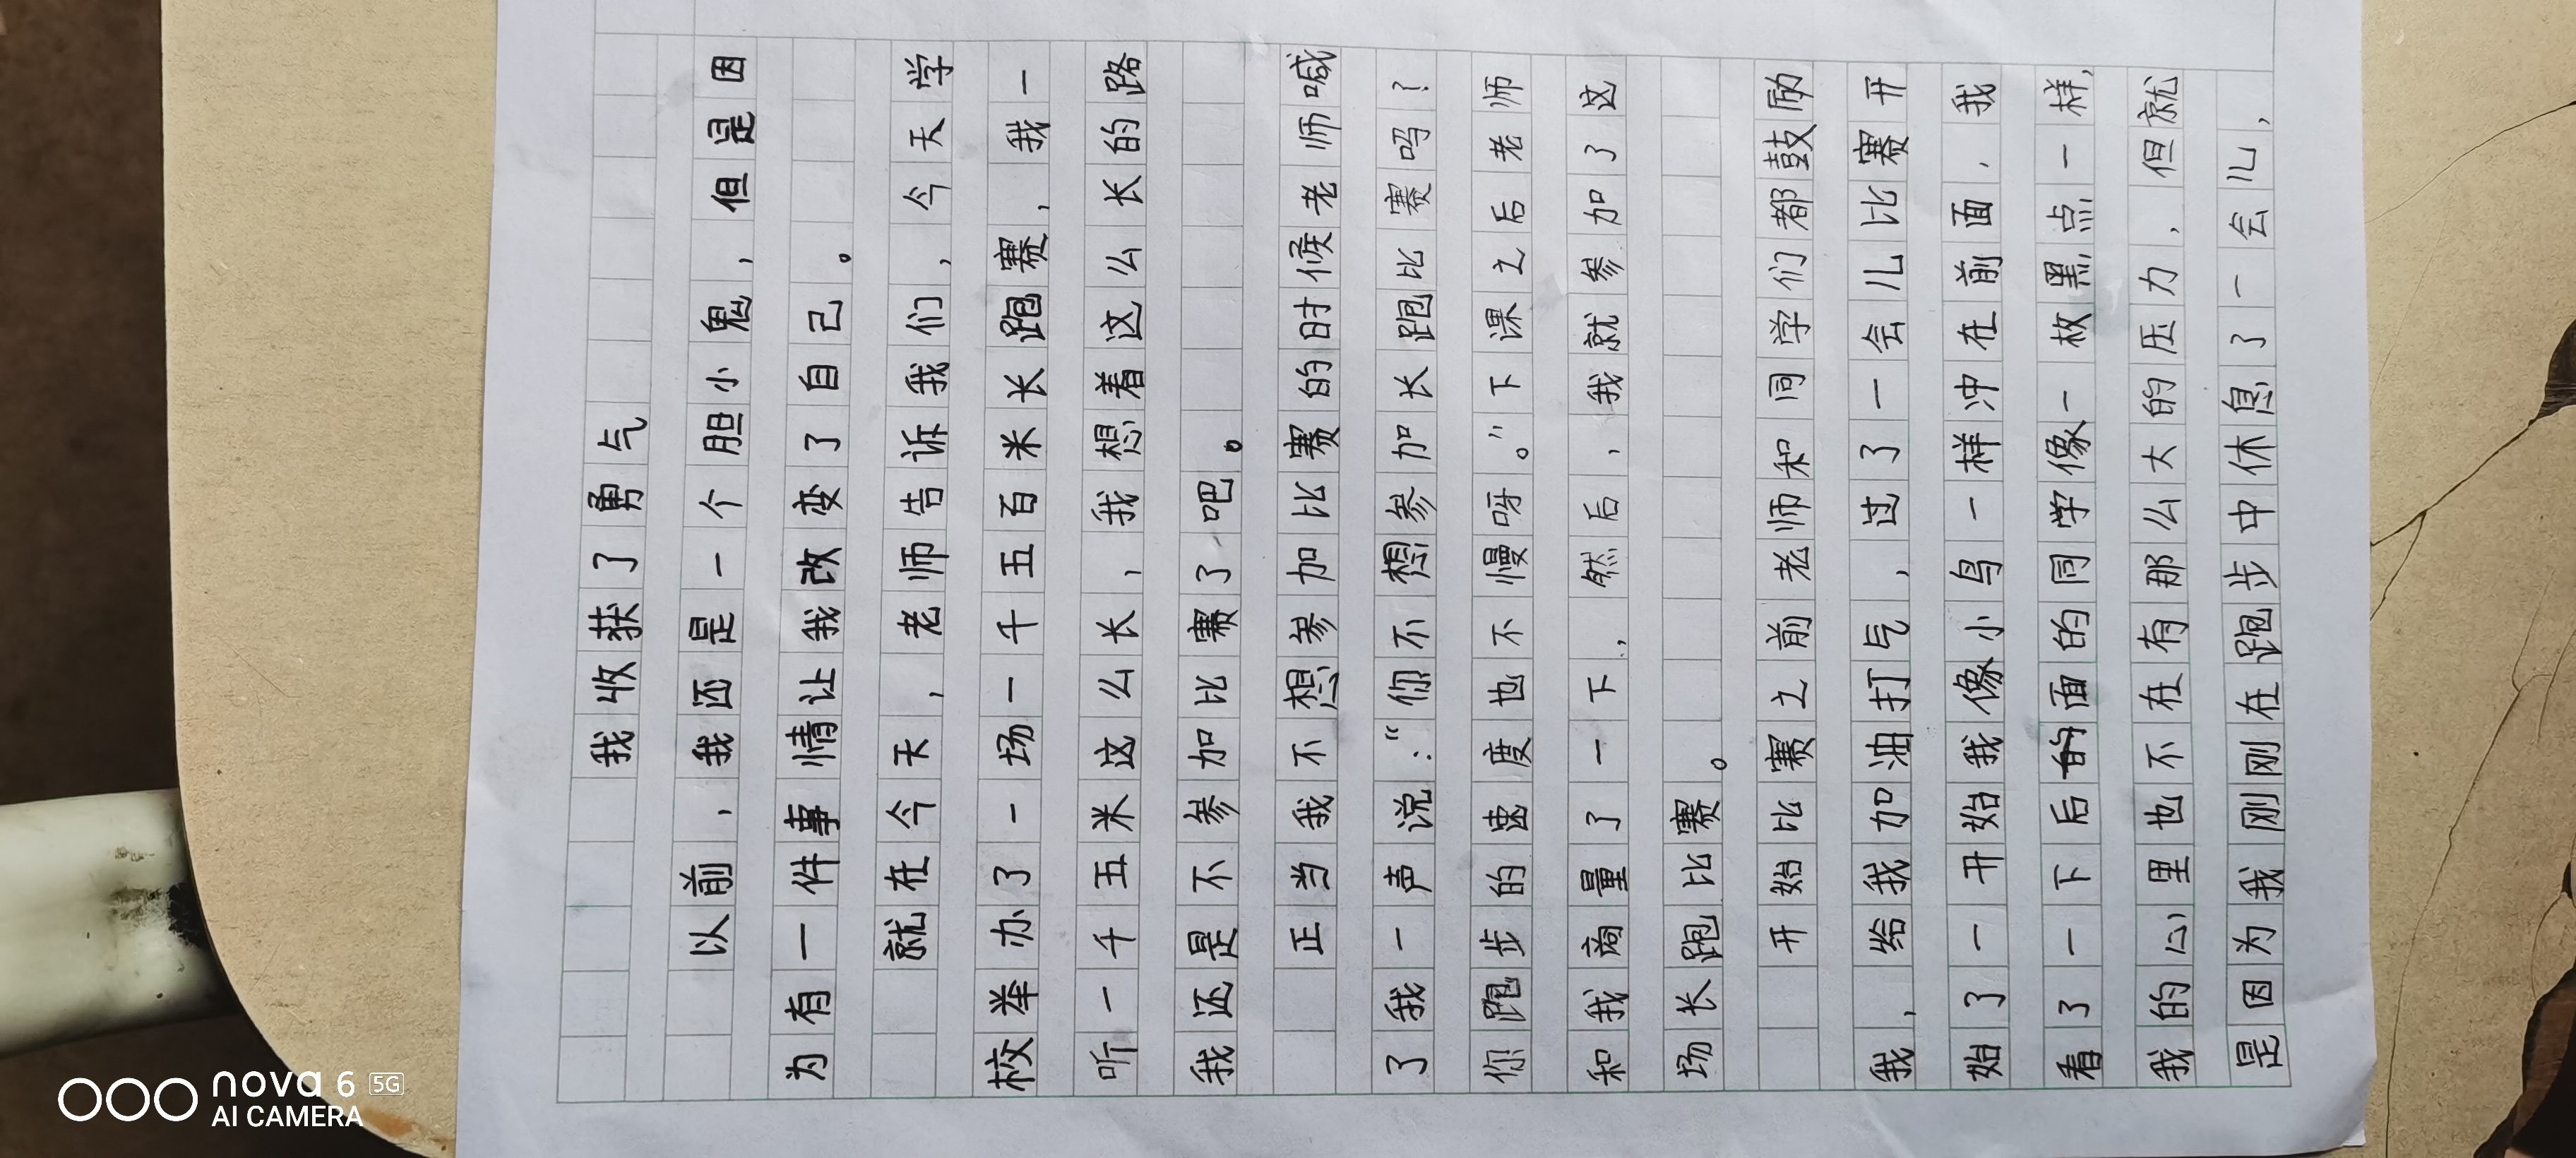 我收获了勇气
以前，我还是一个胆小鬼，但是因
为有一件事情让我改变了自己。
就在今天，老师告诉我们，今天学
校举办了一场一千五百米长跑赛，我一
听一千五米这么长，我想着这么长的路
我还是不参加比赛了吧。
正当我不想参加比赛的时候老师喊
了我一声说：“你不想参加长跑比赛吗？
你跑步的速度也不慢呀。”下课之后老师
和我商量了一下，然后，我就参加了这
场长跑比赛。
开始比赛之前老师和同学们都鼓励
我，给我加油打气，过了一会儿比赛开
始了一开始我像小鸟一样冲在前面，我
看了一下后面的同学像一枚黑点一样，
我的心里也不在有那么大的压力，但就
是因为我刚刚在跑步中休息了一会儿，
nova 6 5G
AI CAMERA